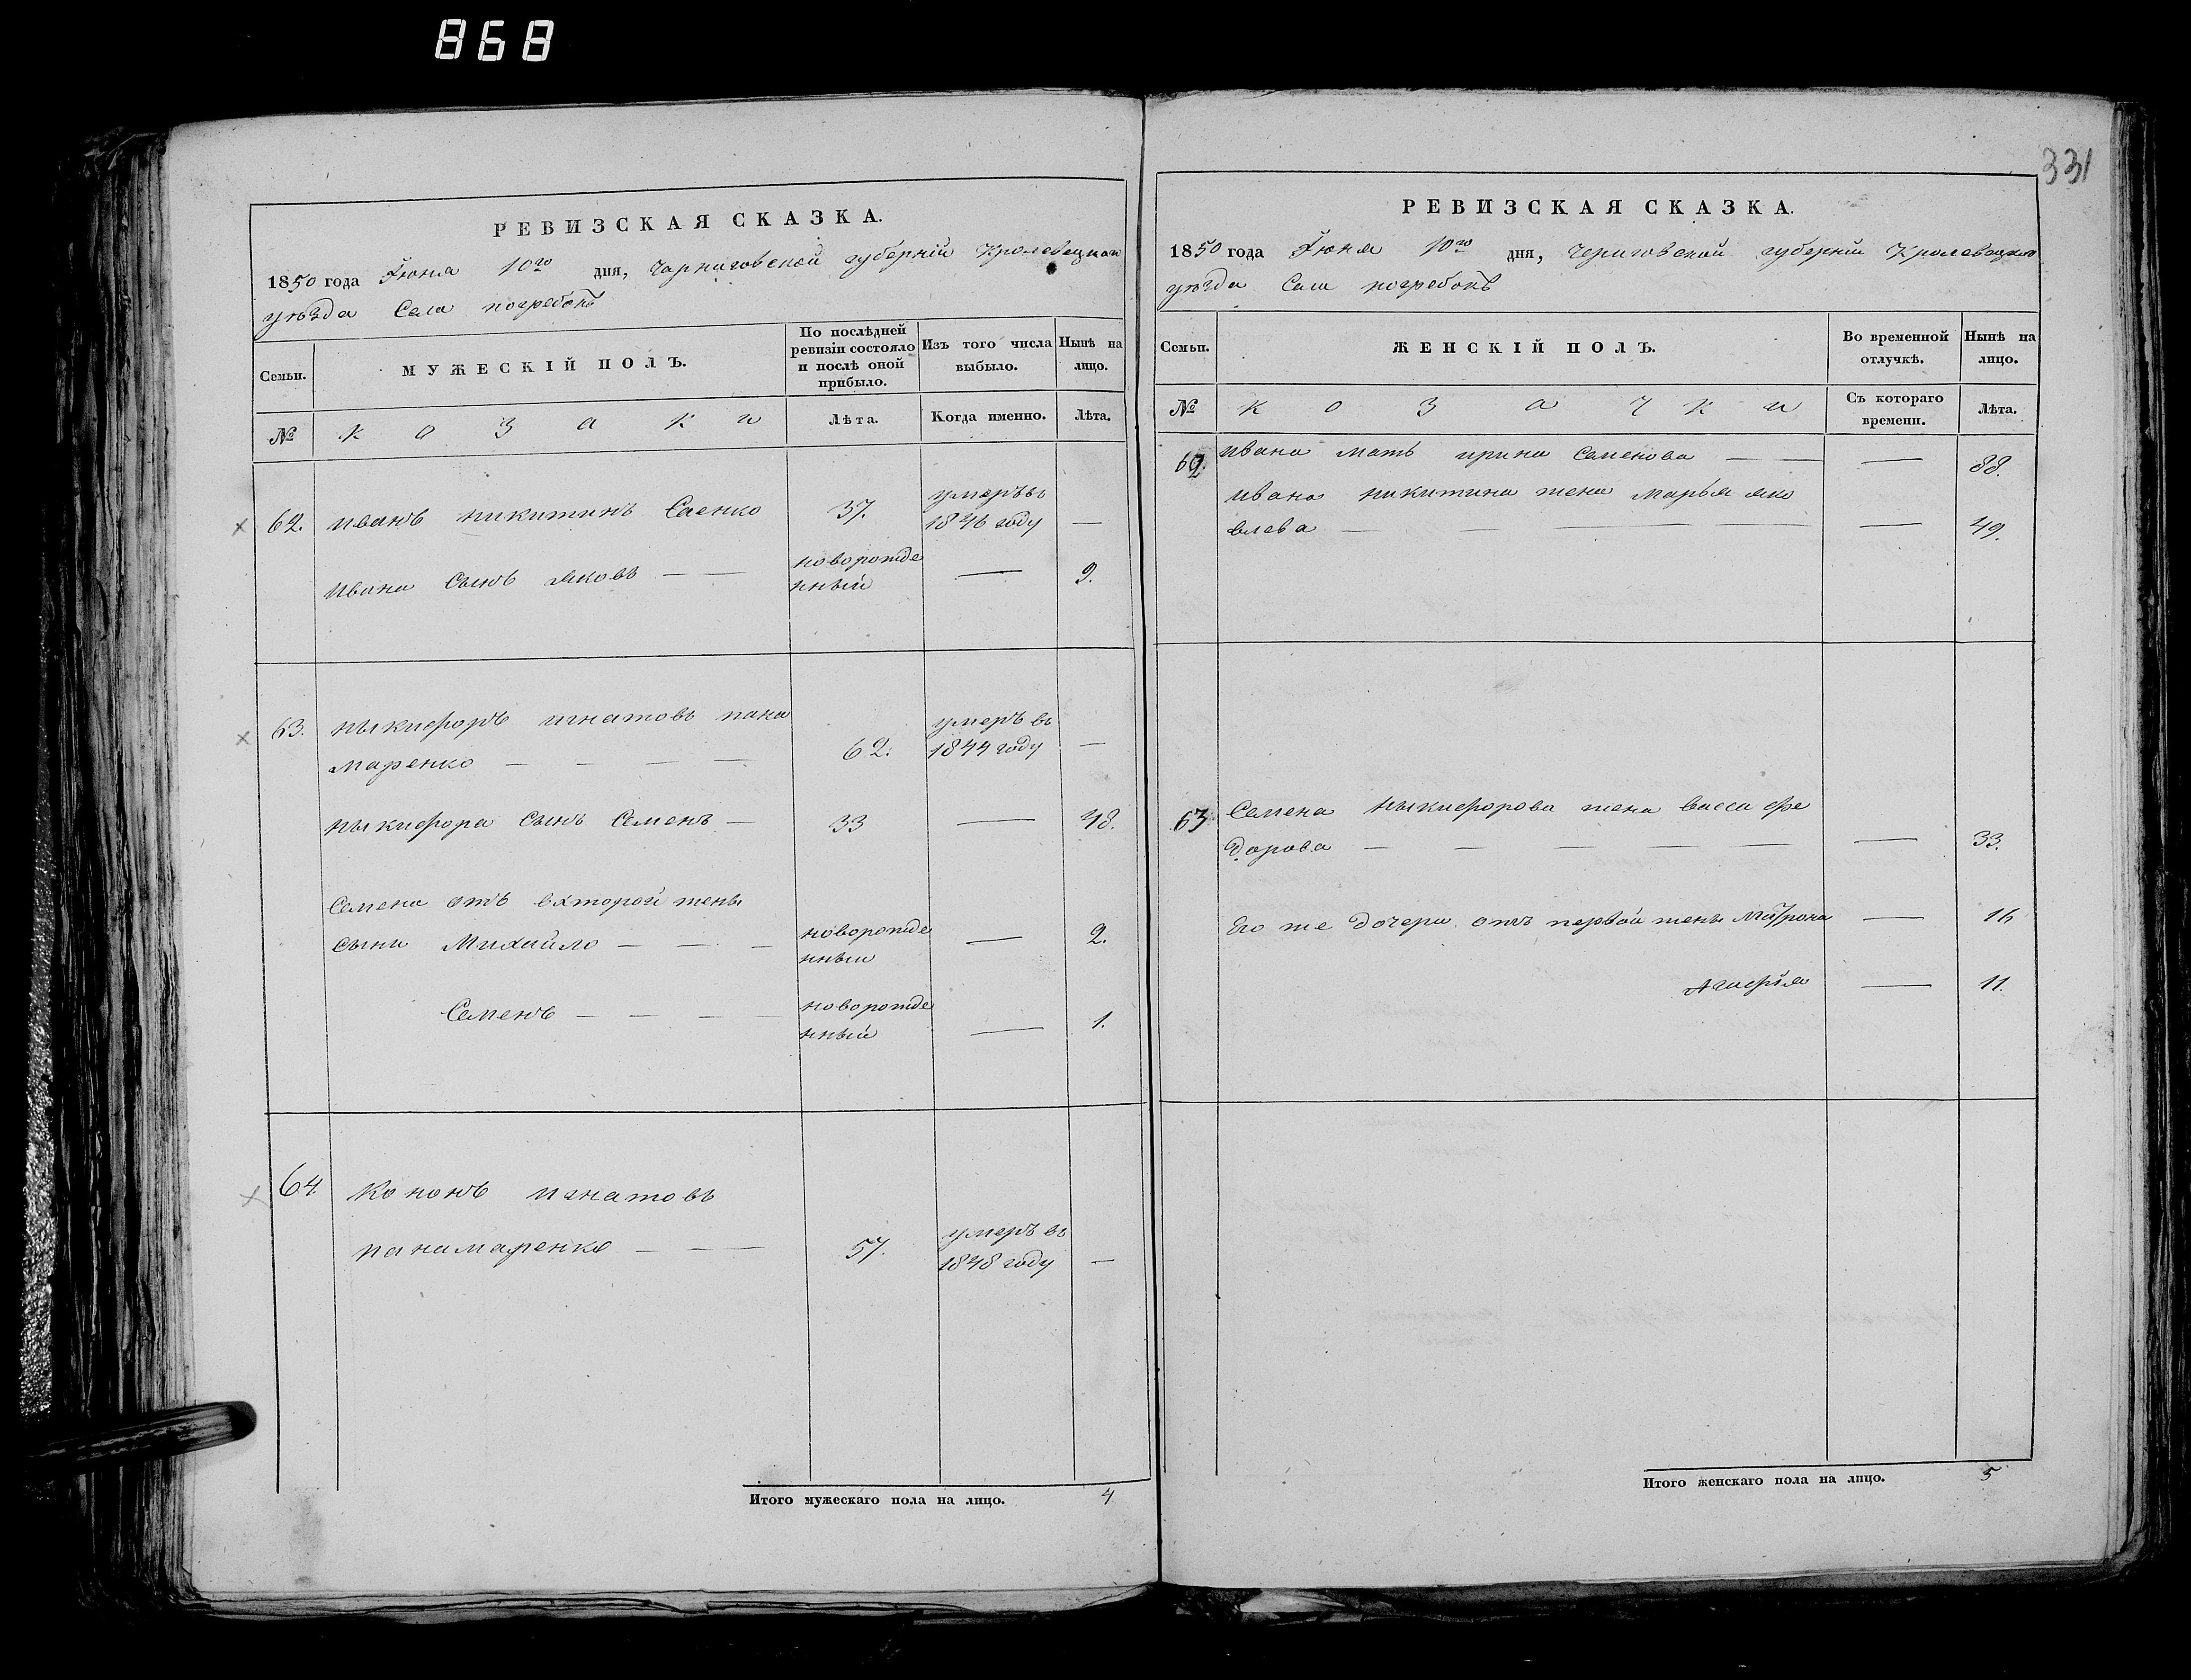 868
РЕВИЗСКАЯ СКАЗКА.
1850 года Іюня 10го дня, Чарниговской губерніи Кролевецкаго
уѣзда Села погребокъ
Семьи.
МУЖЕСКІЙ ПОЛЪ.
По послѣдней
ревизіи состояло
и послѣ оной
прибыло.
Изъ того числа
выбыло.
Нынѣ на
лицо.
№
козаки
Лѣта.
Когда именно.
Лѣта.
62. иванъ никитинъ Саенко 37. умеръ въ
1846 году —
ивана Сынъ яковъ — — новорожде
нный — 9.
63. ныкифоръ игнатовъ пана
маренко — — — — 62. умеръ въ
1844 году —
ныкифора Сынъ Семенъ — 33 — 48.
Семена отъ вхторой жены
сыни Михайло — — — новорожде
нный — 2.
Семенъ — — — — новорожде
нный — 1.
64 кононъ игнатовъ
панамаренко — — — 57. умеръ въ
1848 году —
Итого мужескаго пола на лицо. 4
331
РЕВИЗСКАЯ СКАЗКА.
1850 года Іюня 10го дня, Черниговской губерніи Кролевецкаго
уѣзда Села погребокъ
Семьи.
ЖЕНСКІЙ ПОЛЪ.
Во временной
отлучкѣ.
Нынѣ на
лицо.
№
козачки
Съ котораго
времени.
Лѣта.
62. ивана мать ирина Семенова — — — 88.
ивана никитина жена марья яко
влева — — — — 49.
63 Семена ныкифорова жена васса фе
дорова — — — — — — 33.
Его же дочери отъ первой жены Матрона — 16
Агафія — 11.
Итого женскаго пола на лицо. 5